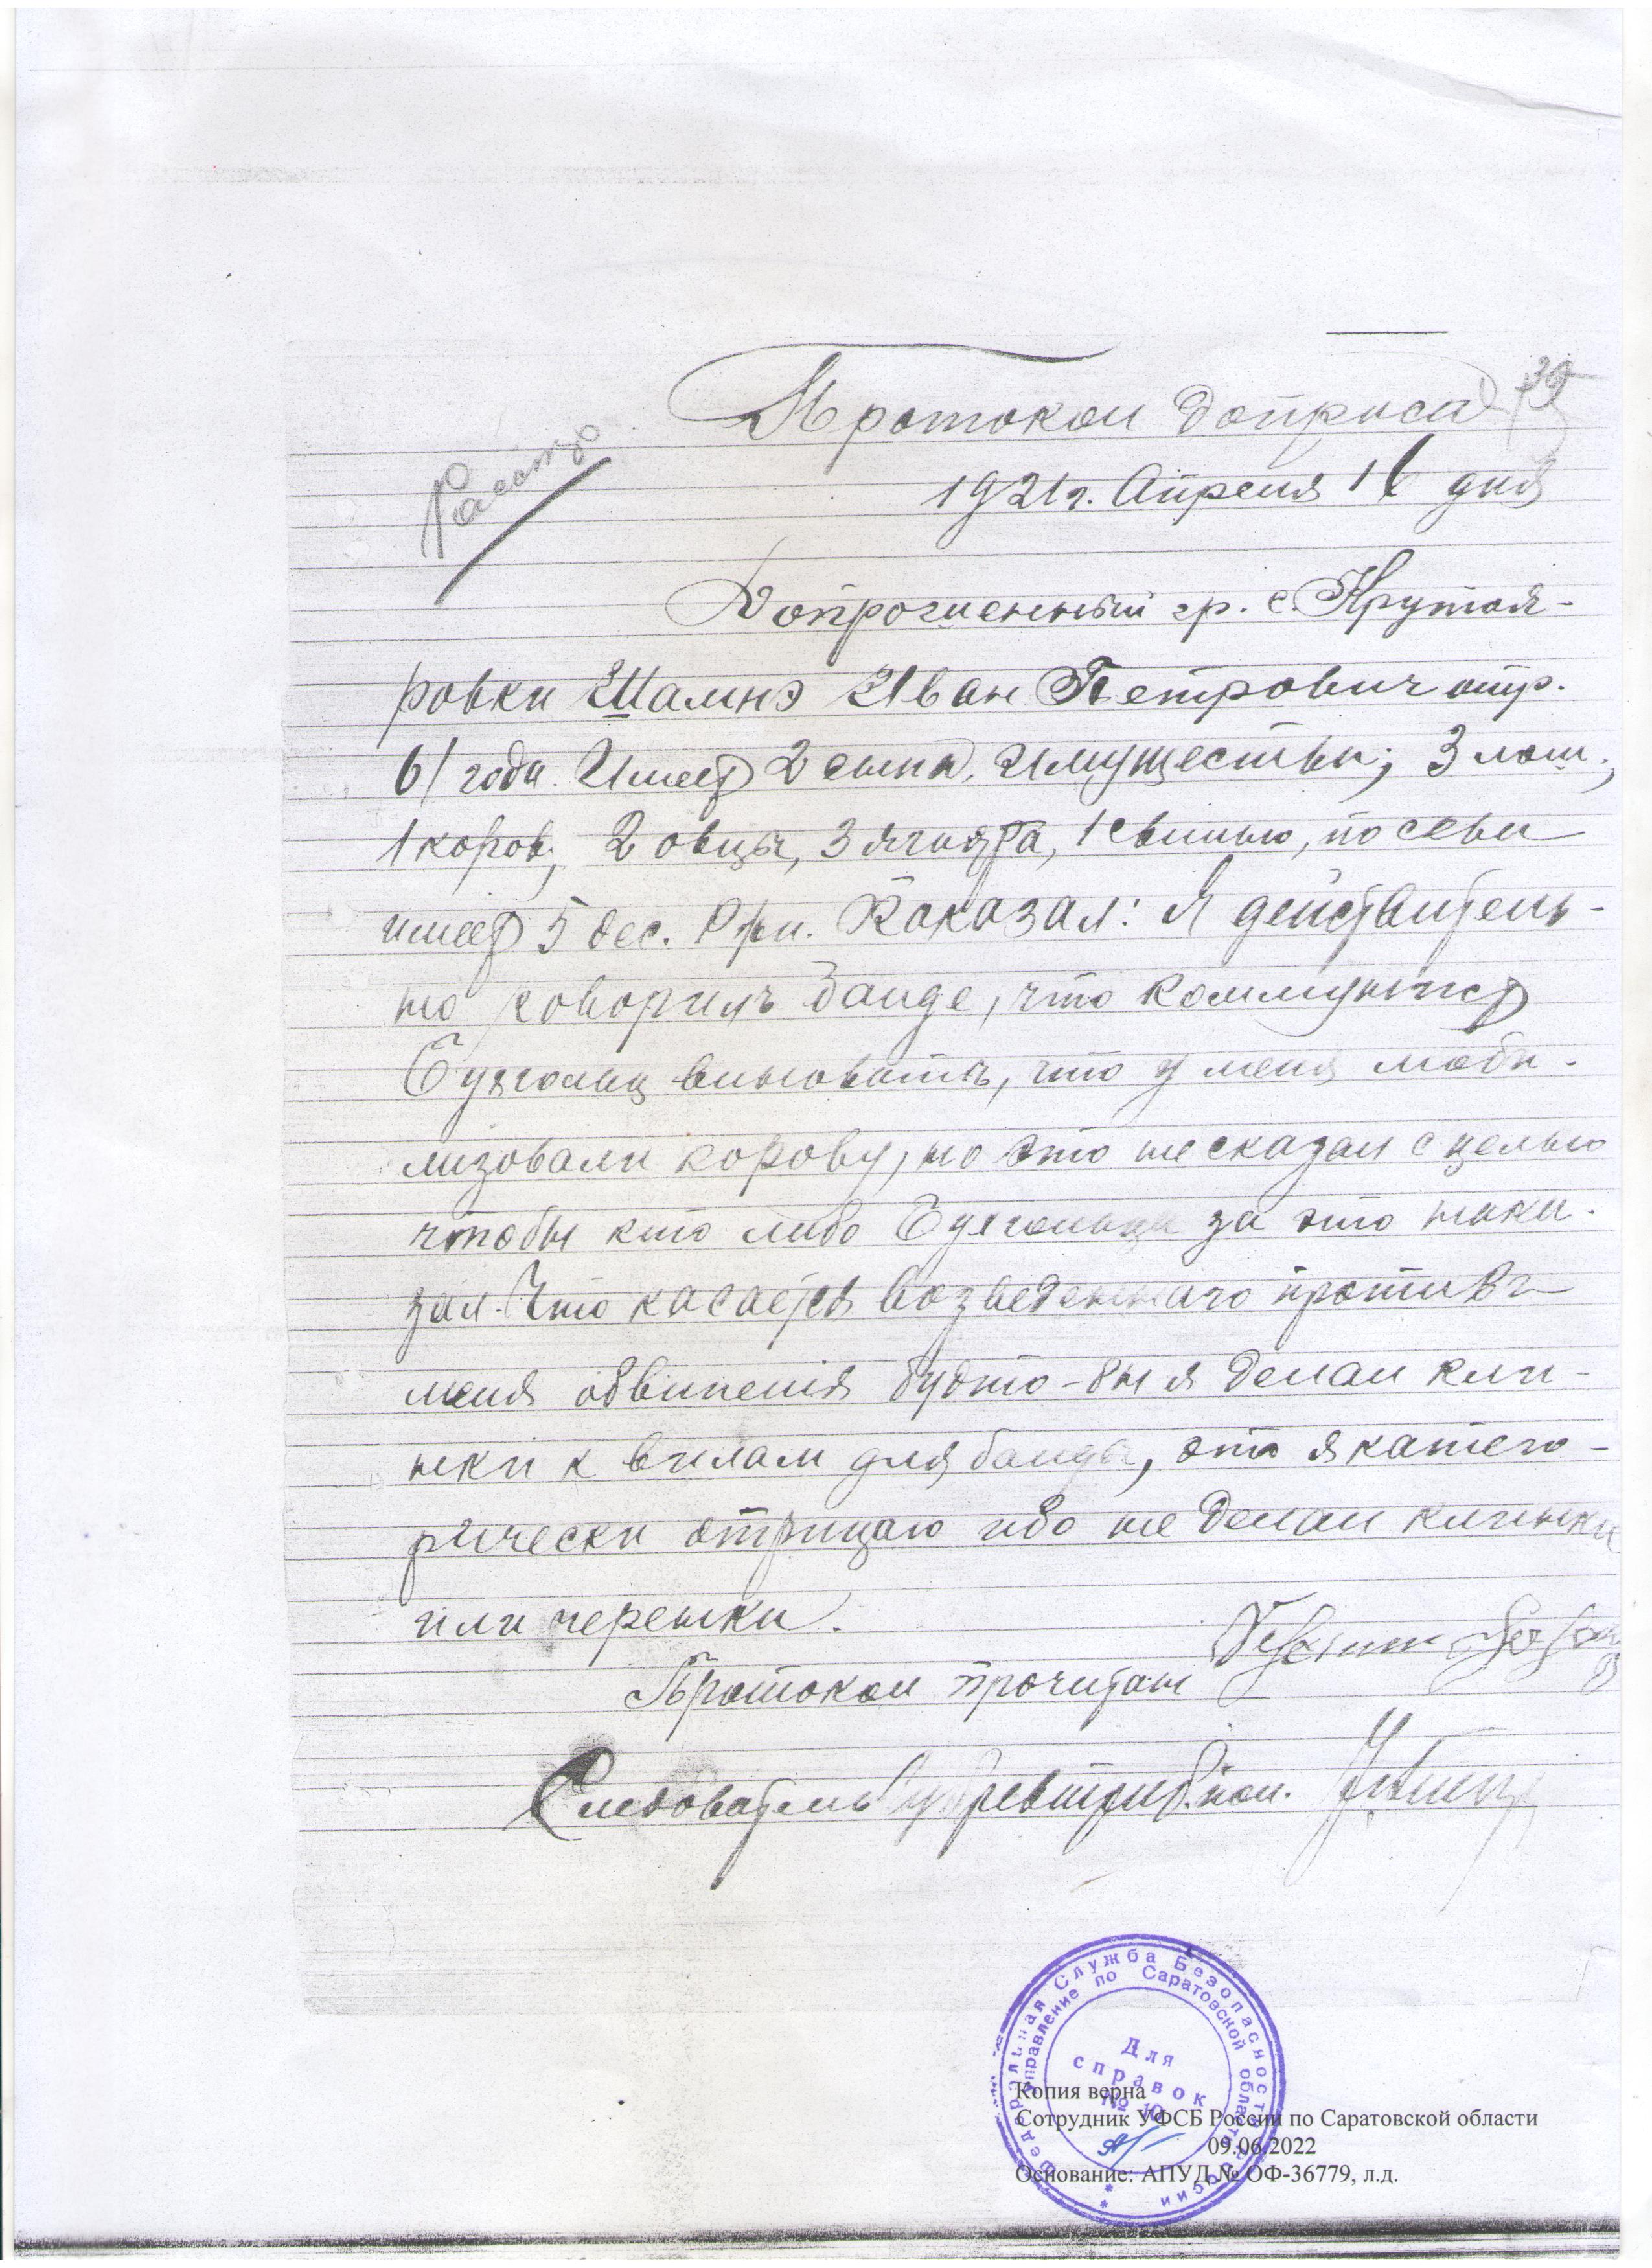 39
Протокол допроса
1921 г. Апреля 16 дня
Допрошенный гр. с. Крутоя-
ровки Шалнэ Иван Петрович отр.
61 года. Имеет 2 сына. Имущества; 3 лош.,
1 коров, 2 овцы, 3 ягнята, 1 свинью, посевы
имеет 5 дес. Показал: Я действитель-
но говорилъ банде, что коммунист
виноватъ, что у меня моби-
лизовали корову, но это не сказал с целью
чтобы кто либо за это нака-
зал. Что касается возведеннаго противъ
меня обвиненія будто-бы я делал кли-
нки к вилам для банды, это я катего-
рически отрицаю ибо не делал клинки
или черенки.
Протокол прочитан
Следователь
Федеральная Служба Безопасности России
Управление по Саратовской области
Для
справок
№ 10
Копия верна
Сотрудник УФСБ России по Саратовской области
09.06.2022
Основание: АПУД № ОФ-36779, л.д.